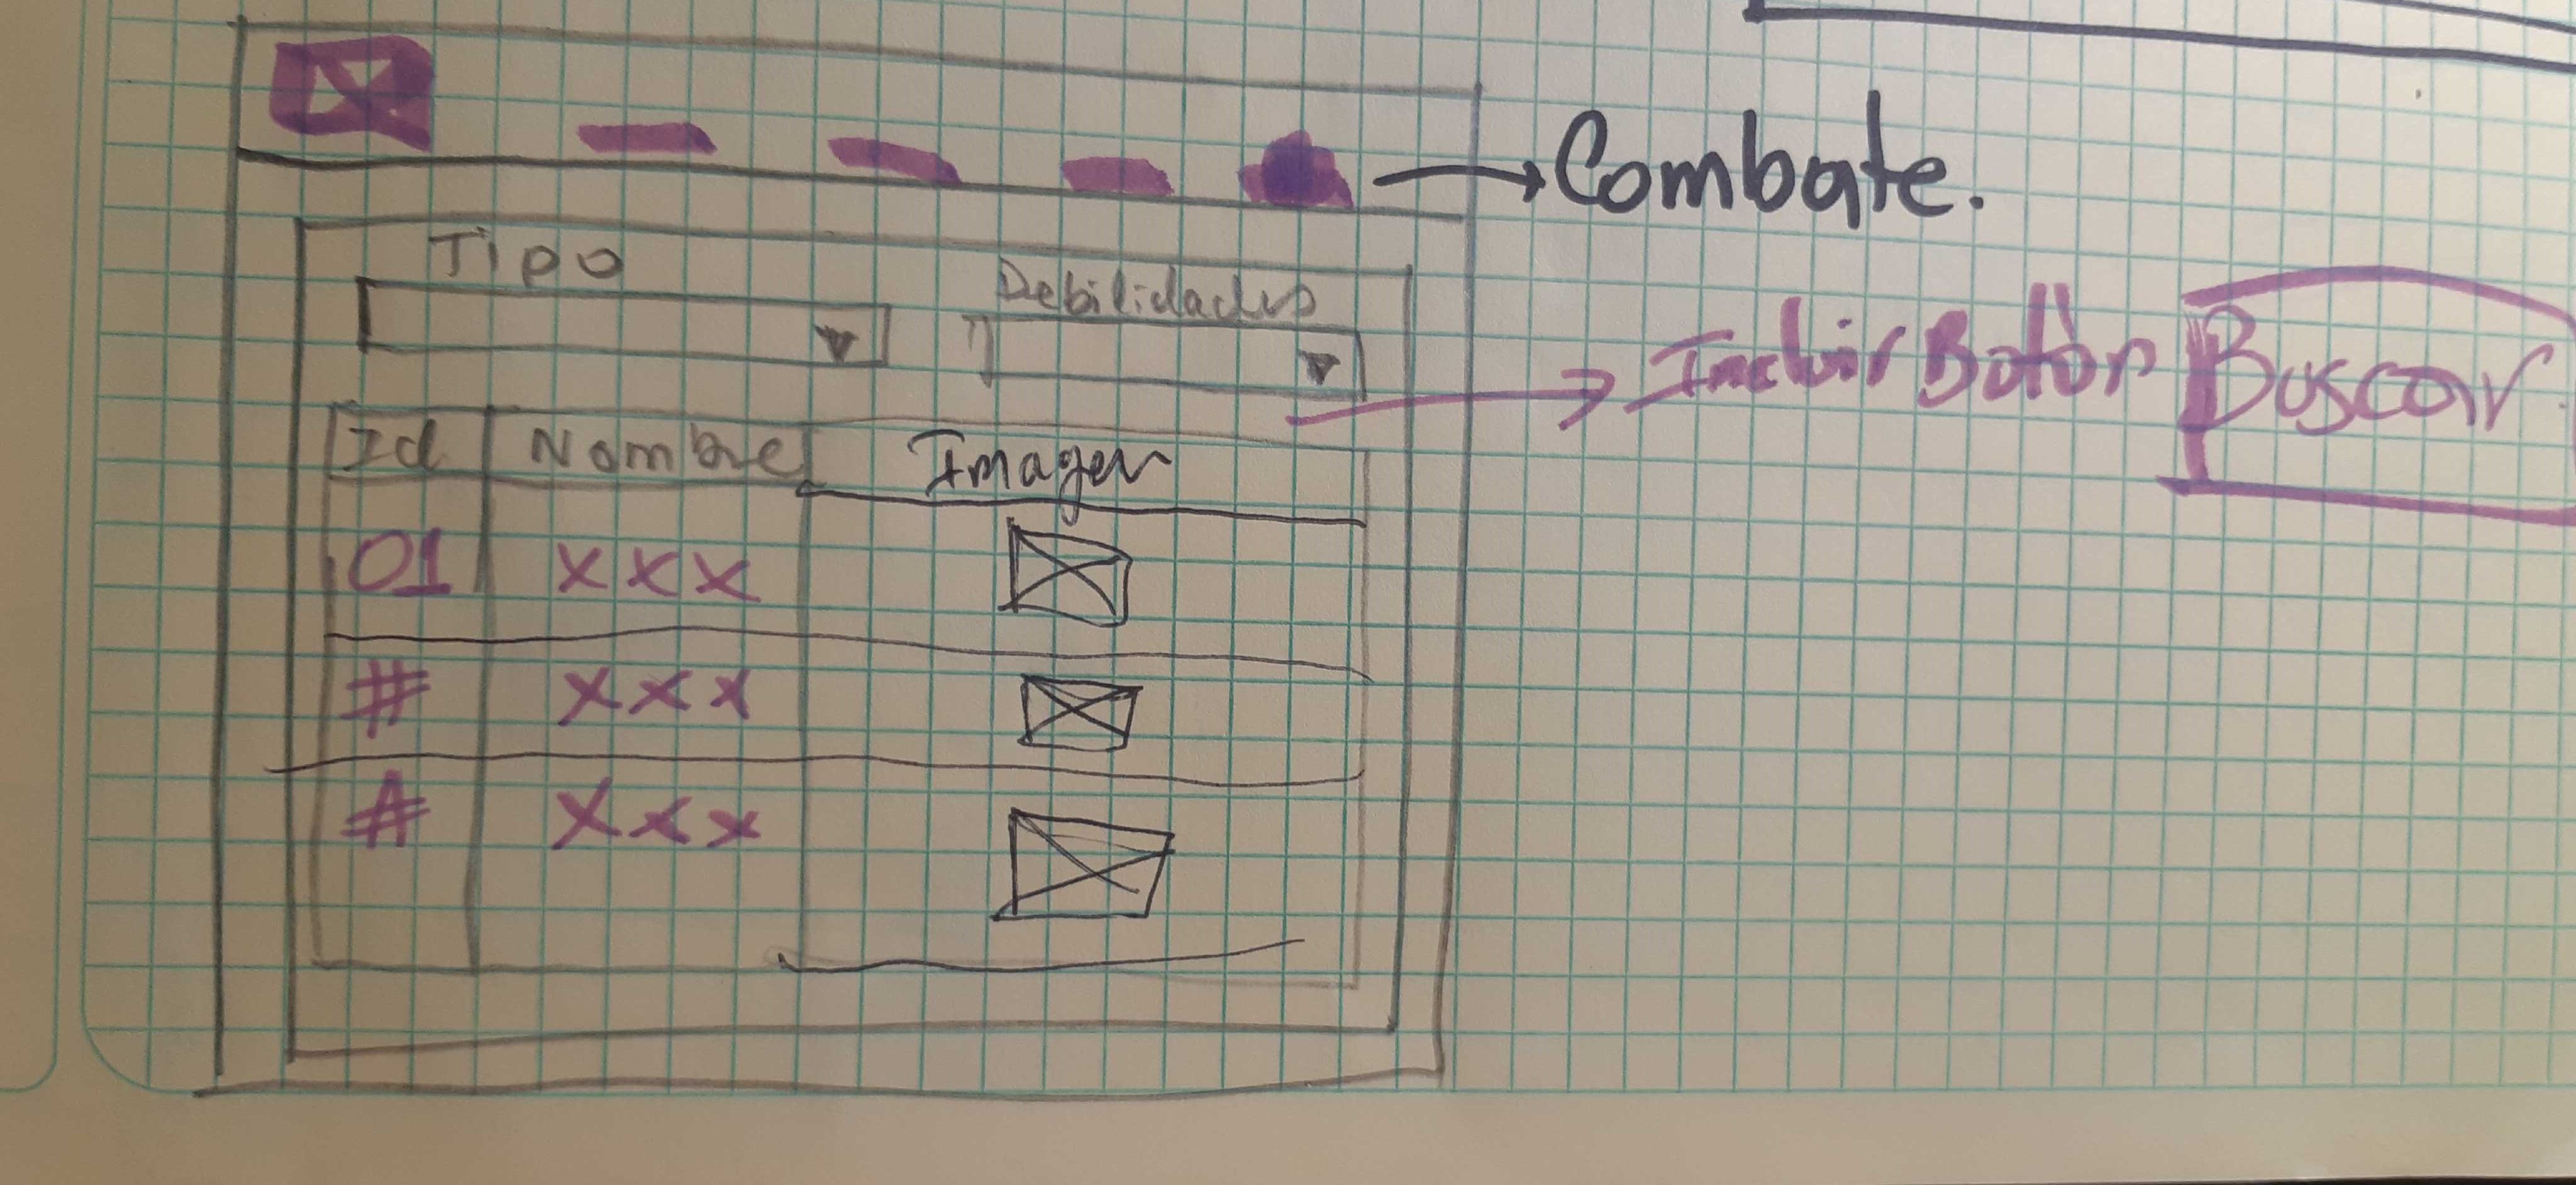 Combate.
Tipo
Debilidades
Incluir Botón Buscar
Id Nombre Imagen
01 xxx
# xxx
# xxx